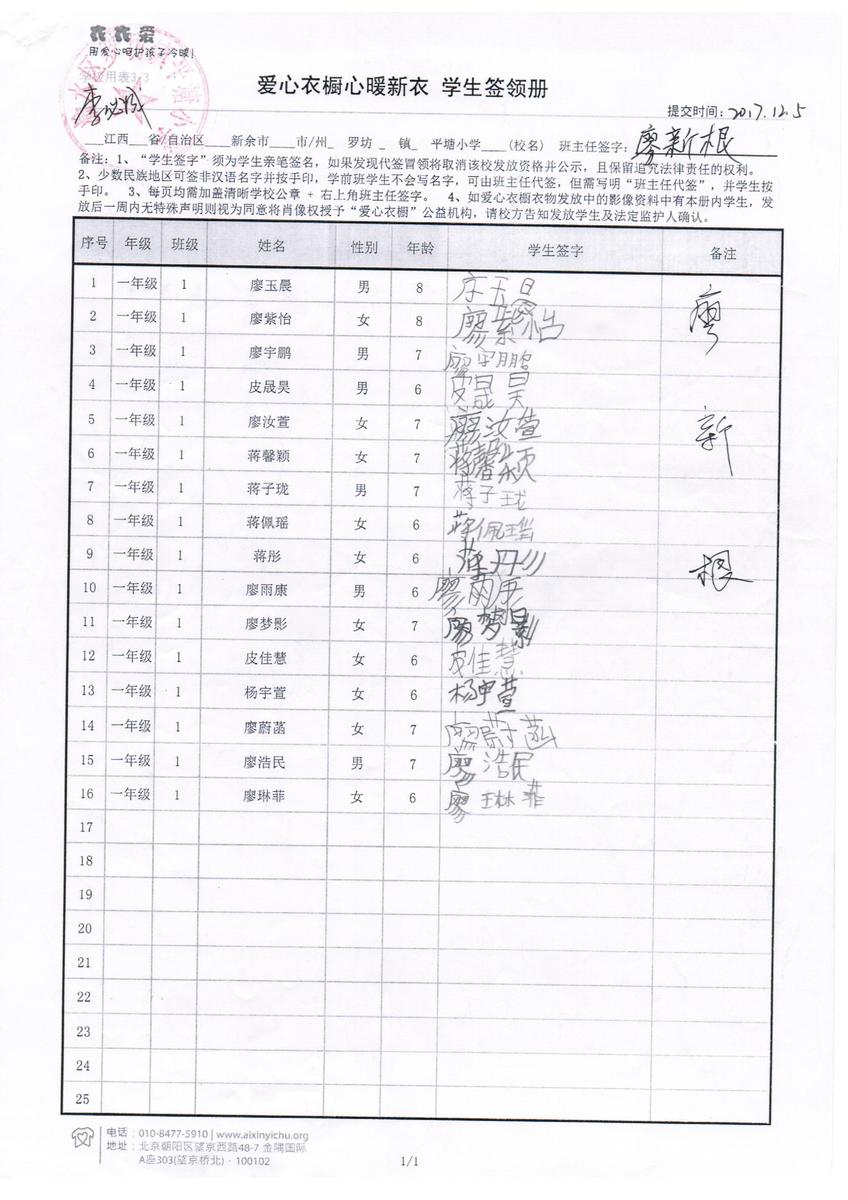 衣衣爱
用爱心呵护孩子冷暖!
学校用表3-3
爱心衣橱心暖新衣 学生签领册
提交时间: 2017.12.5
___江西___省/自治区____新余市____市/州_ 罗坊 _ 镇_ 平塘小学____(校名) 班主任签字: 廖新根
备注: 1、“学生签字”须为学生亲笔签名, 如果发现代签冒领将取消该校发放资格并公示, 且保留追究法律责任的权利。
2、少数民族地区可签非汉语名字并按手印, 学前班学生不会写名字, 可由班主任代签, 但需写明“班主任代签”, 并学生按
手印。 3、每页均需加盖清晰学校公章 + 右上角班主任签字。 4、如爱心衣橱衣物发放中的影像资料中有本册内学生, 发
放后一周内无特殊声明则视为同意将肖像权授予“爱心衣橱”公益机构, 请校方告知发放学生及法定监护人确认。
序号 年级 班级 姓名 性别 年龄 学生签字 备注
1 一年级 1 廖玉晨 男 8
2 一年级 1 廖紫怡 女 8 廖紫怡 廖
3 一年级 1 廖宇鹏 男 7 廖宇鹏
4 一年级 1 皮晟昊 男 6 皮晟昊
5 一年级 1 廖汝萱 女 7 廖汝萱 新
6 一年级 1 蒋馨颖 女 7 蒋馨颖
7 一年级 1 蒋子珑 男 7 蒋子珑
8 一年级 1 蒋佩瑶 女 6 蒋佩瑶
9 一年级 1 蒋彤 女 6 蒋彤 根
10 一年级 1 廖雨康 男 6 廖雨康
11 一年级 1 廖梦影 女 7 廖梦影
12 一年级 1 皮佳慧 女 6 皮佳慧
13 一年级 1 杨宇萱 女 6 杨宇萱
14 一年级 1 廖蔚菡 女 7 廖蔚菡
15 一年级 1 廖浩民 男 7 廖浩民
16 一年级 1 廖琳菲 女 6 廖琳菲
17
18
19
20
21
22
23
24
25
电话: 010-8477-5910 | www.aixinyichu.org
地址: 北京朝阳区望京西路48-7 金隅国际
A座303(望京桥北) · 100102
1/1